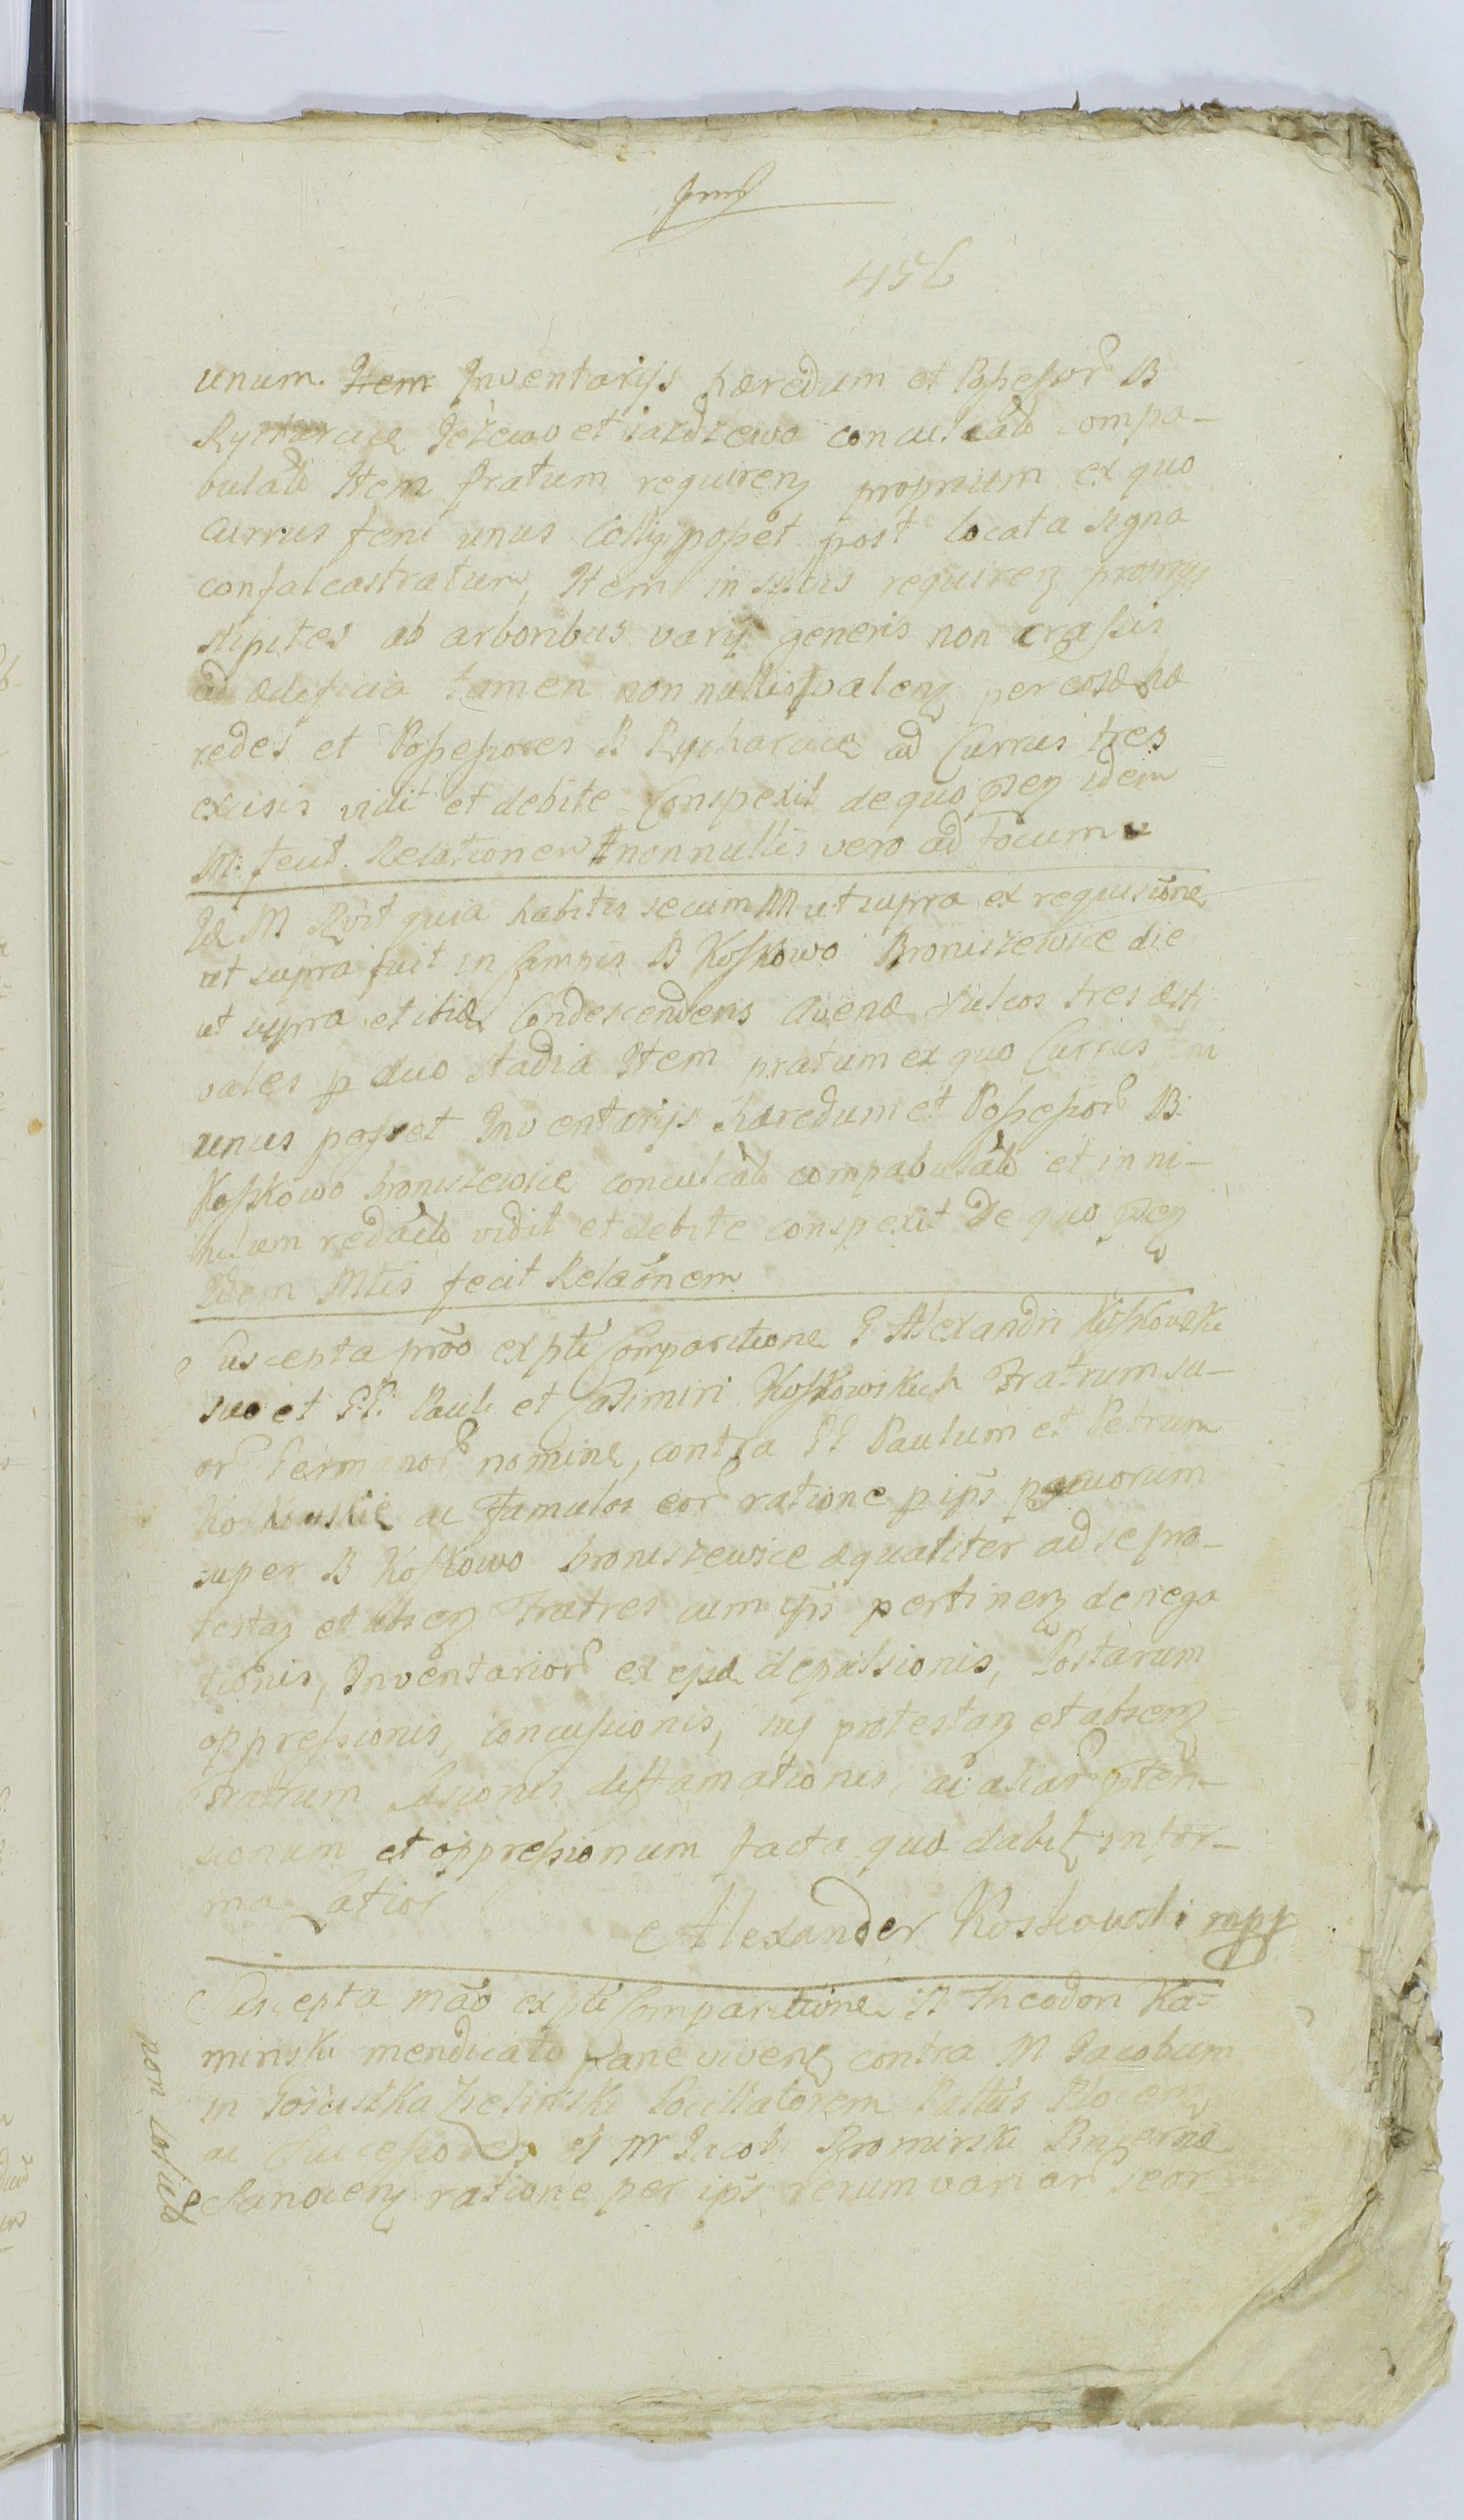 456
unum. Item Inventarijs hæredum et Possessor B
Rycharcice Jeżewo et Jazdzewo conculcato compa-
bulato Item Pratum requiren proprium ex quo
Currus feni unus colligi posset post locata signa
confalcastratum, Item in sylvis requiren proprijs
stipites ab arboribus varij generis non crassis
ad ædificia tamen non nullis valen per eosd hæ
redes et Possessores B Rycharcice ad Currus tres
excisis vidit et debite Conspexit de quo præn idem
M: fecit Relationem nonnullis vero ad focum
Id M Rvit quia habitis secum NN ut supra ex requisitione
ut supra fuit in Campis B Koskowo Broniszewice die
ut supra et ibid Condescendens avenæ sulcos tres æsti
vales p duo stadia Item pratum ex quo Currus feni
unus posset Inventarijs hæredum et Possessor B
Koskowo broniszewice conculcato compabulato et in ni-
hilum redacto vidit et debite conspexit De quo præn
Idem Mtis fecit Relaonem
Suscepta prõo ex pte Comparitione G Alexandri Koskowski
suo et GG: Pauli et Casimiri Koskowskich Fratrum su-
or Germanor nomine, contra GG Paulum et Petrum
Koskowskie ac famulos eor ratione p ips pascuorum
super B Koskowo broniszewice æqualiter ad se pro-
testan et absen Fratres cum ips pertinen denega
tionis, Inventarior ex ejsd depulsionis, Postarum
oppressionis, concussionis, suj protestan et absen
Fratrum læsionis diffamationis ac aliar præten-
sionum et oppressionum facta quo dabit in for-
ma latior
Alexander Koskowski mpp
Suscepta mão ex pte Comparitione B Theodori Ka-
minski mendicato pane viven contra M Jacobum
in Zielinski Pocillatorem Pallus Plocen
ac Successores et M Jacobi Bromirski Pincernæ
Sanocien ratione per ips rerum variar seor-
non